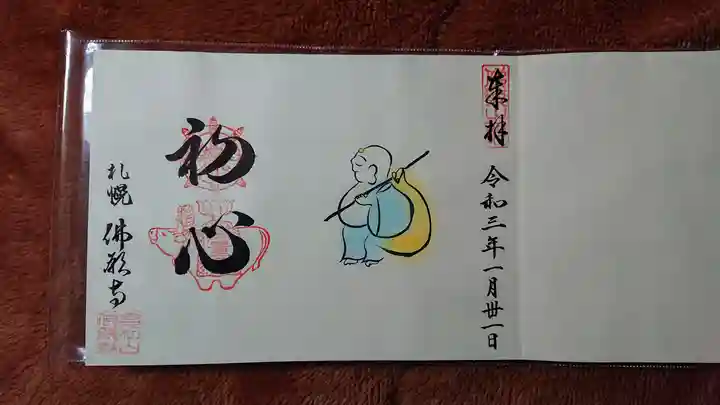 奉拝
令和三年一月丗一日
初心
札幌 佛願寺